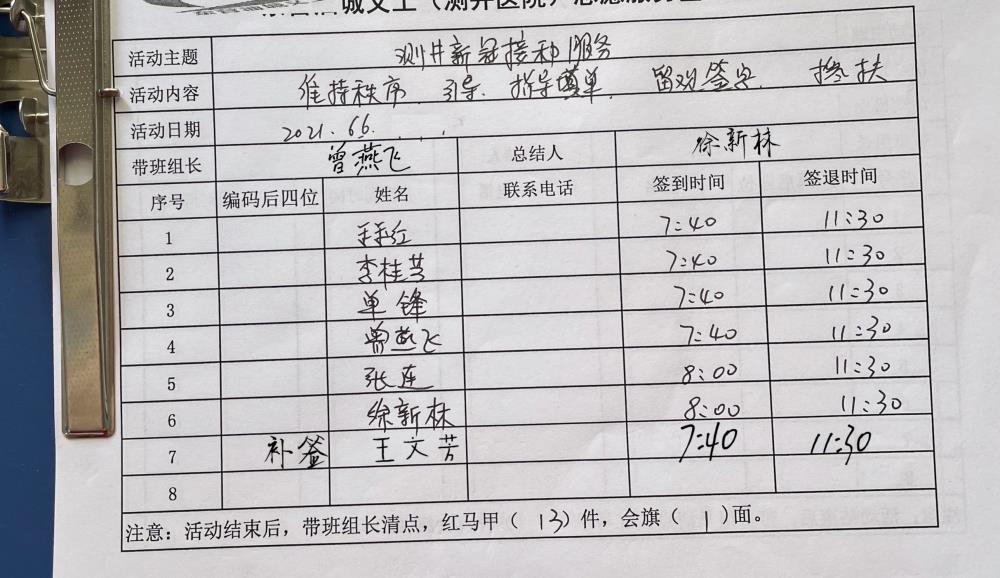 诚义工（测井医院）志愿服务
活动主题 测井新冠接种服务
活动内容 维持秩序、引导、指导填单、留观签字、搀扶
活动日期 2021.6.6.
带班组长 曾燕飞 总结人 徐新林
序号 编码后四位 姓名 联系电话 签到时间 签退时间
1 红 7:40 11:30
2 李桂芳 7:40 11:30
3 单锋 7:40 11:30
4 曾燕飞 7:40 11:30
5 张莲 8:00 11:30
6 徐新林 8:00 11:30
7 补签 王文芳 7:40 11:30
8
注意：活动结束后，带班组长清点，红马甲（13）件，会旗（1）面。